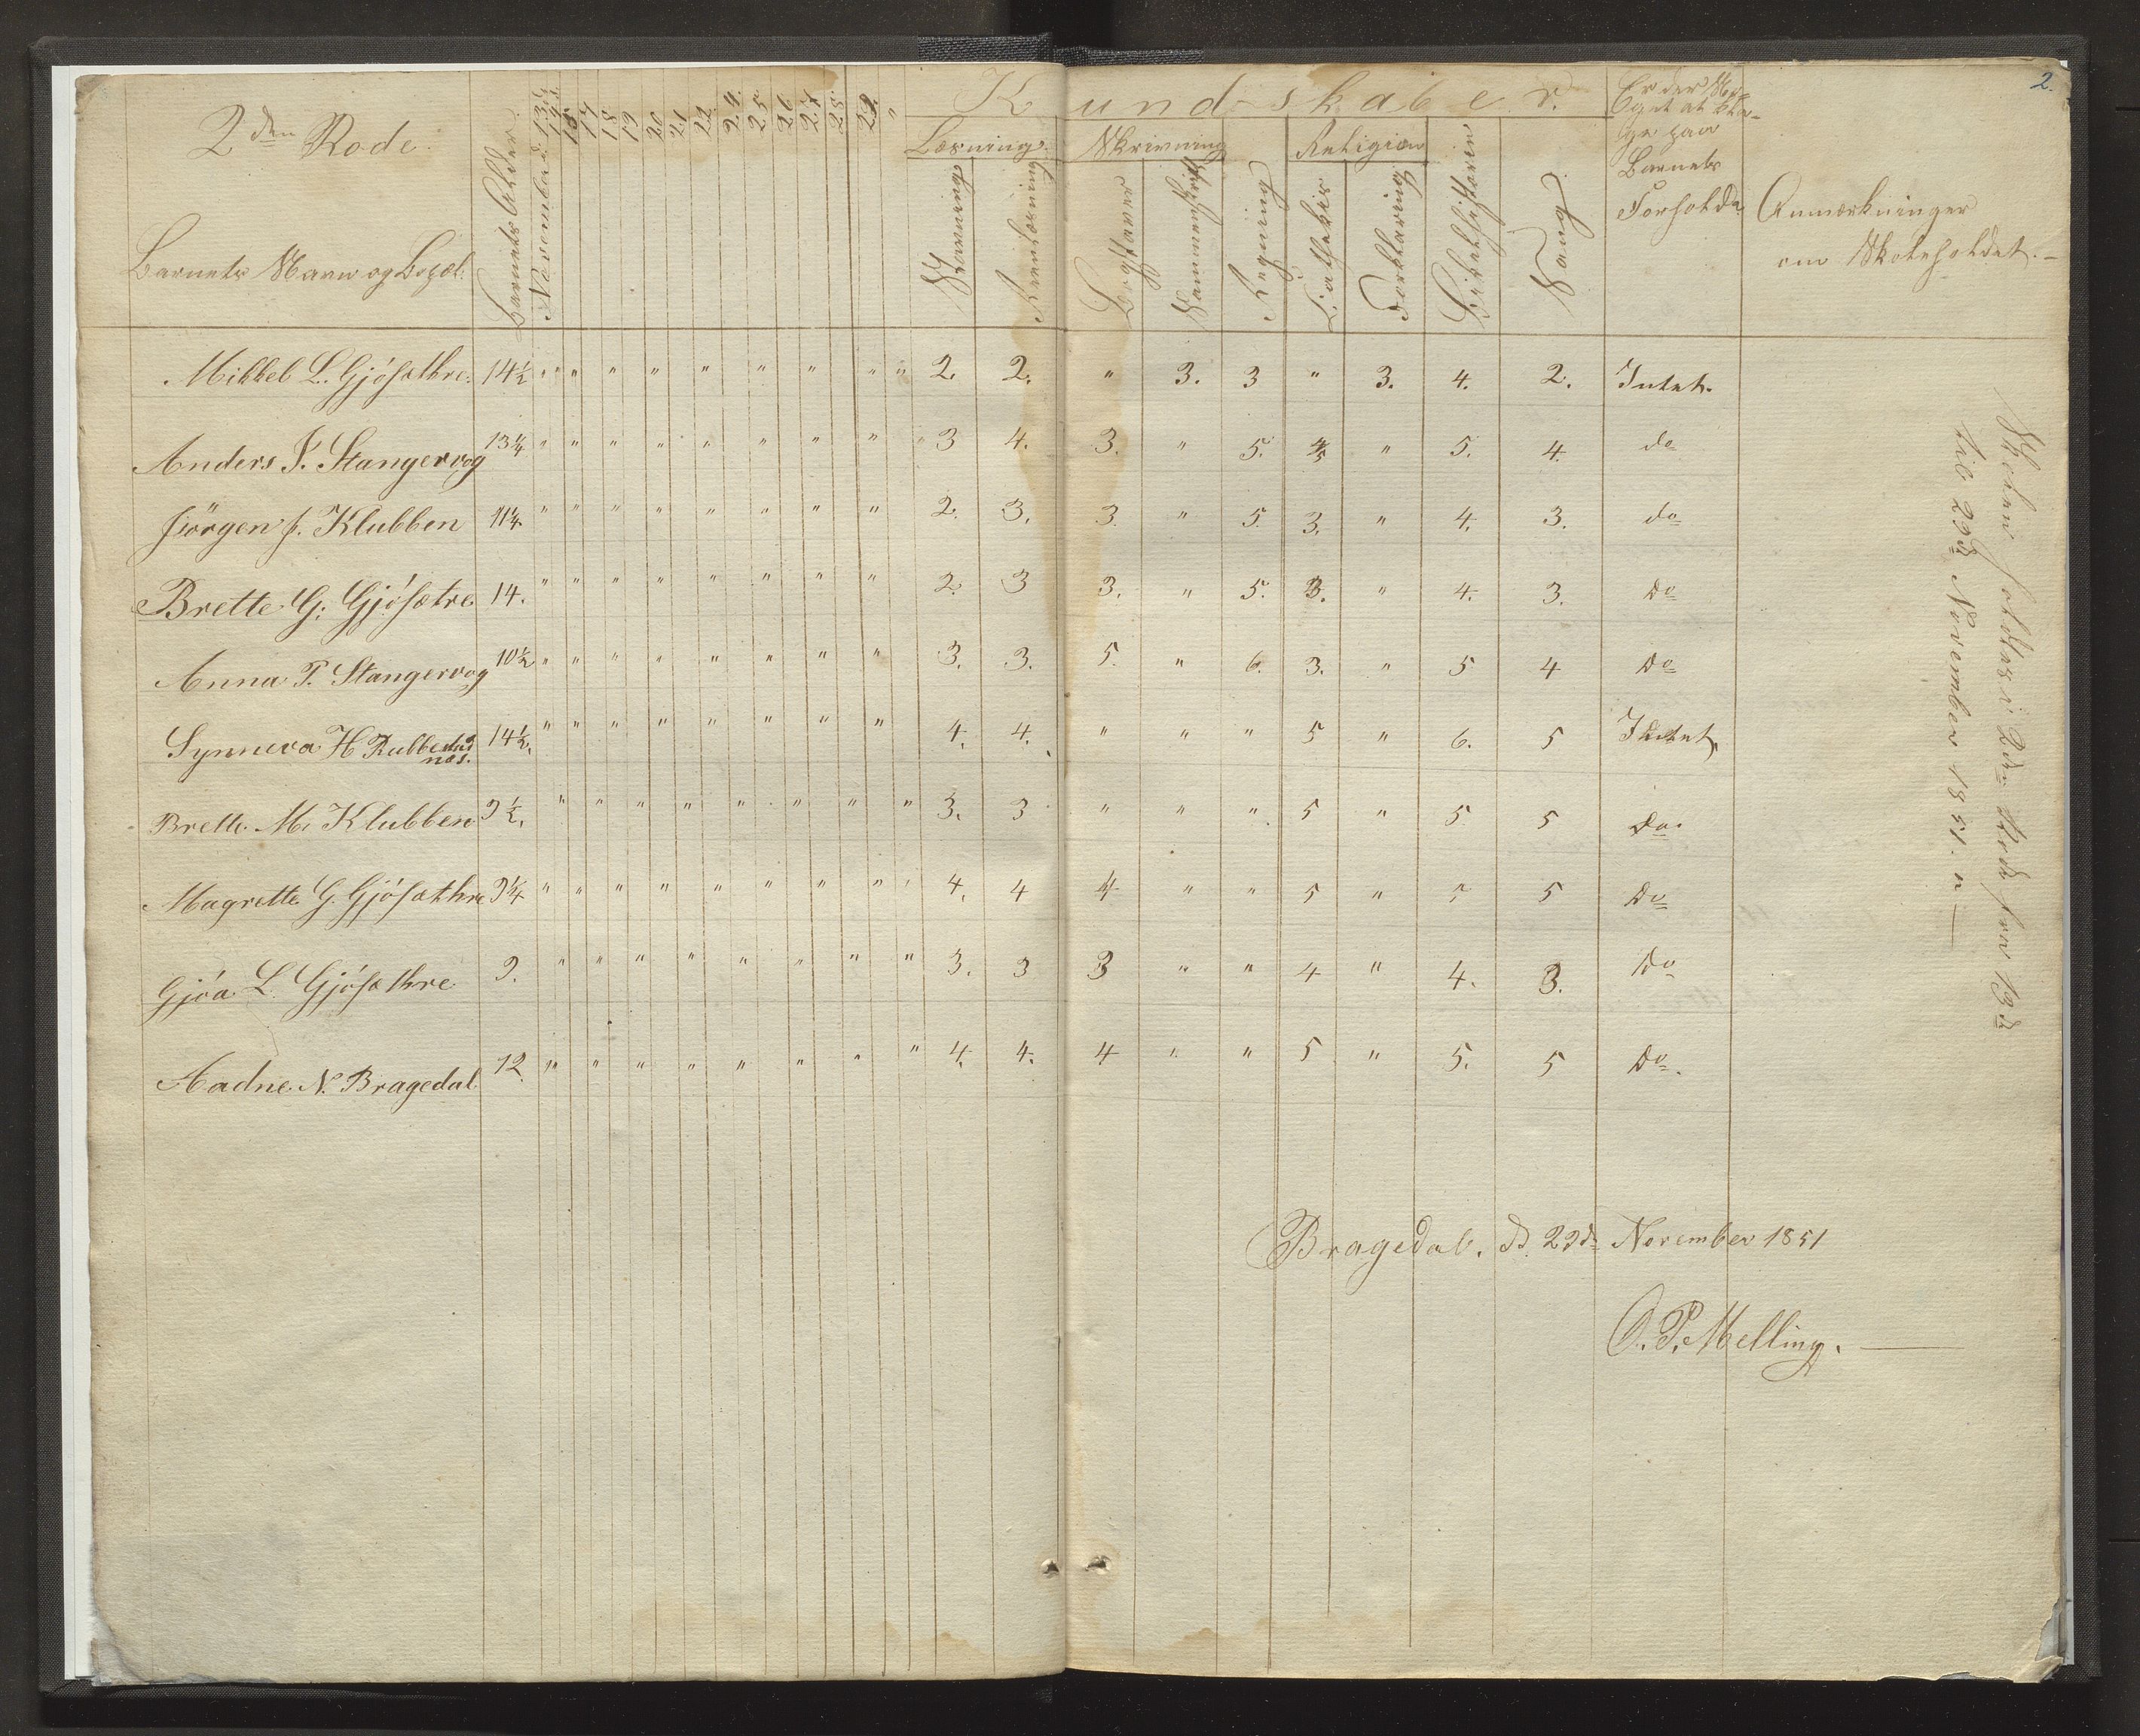 2.
2den Rode.
Barnets Navn og Bopæl.
Barnets Alder.
November 13de 14d 15 17 18 19 20 21 22 24. 25 26 27 28 29. "
Kundskaber.
Læsning.
Stavning
Reenlæsning
Skrivning
Bogstaver
Sammenskrift
Regning
Religion
Cathekis
Forklaring
Bibelhistorien
Sang
Er der No-
get at kla-
ge paa
Barnets
Forhold?
Anmærkninger
om Skoleholdet.-
Mikkel L. Gjøsæthre. 14½ " " " " " " " " " " 2. 2. " 3. 3 " 3. 4. 2. Intet.
Anders J. Stangervog 13¼ " " " " " " " " " 3 4. 3. " 5. 4/5 " 5. 4. do
Jörgen J. Klubben 11¼. " " " " " " " " 2. 3. 3. " 5. 3. " 4. 3. do
Brette G. Gjøsætre 14. " " " " " " " " 2. 3 3. " 5. 3. " 4. 3. Do
Anna P. Stangervog 10½ " " " " " " " " 3. 3. 5. " 6. 3. " 5 4 Do
Synneva H Rubbestad
næs. 14½. " " " " " " " " 4. 4. " " " 5 " 6. 5 Intet.
Brette M. Klubben 9½. " " " " " " " " 3. 3 " " " 5 " 5 5 Do.
Magrette G. Gjøsæthre 9¼ " " " " " " " " " 4. 4 4 " " 5 " 5 5 Do
Gjøa L. Gjøsæthre 9. " " " " " " " " 3. 3 3 " " 4 " 4. 3. Do
Aadne N. Bragedal 12. " " " " " " " " 4. 4. 4 " " 5 " 5. 5 Do.
Skolen holdtes i 2den Rode fra 13de
til 29de November 1851.
Bragedal. d. 29de November 1851
O. P. Melling.